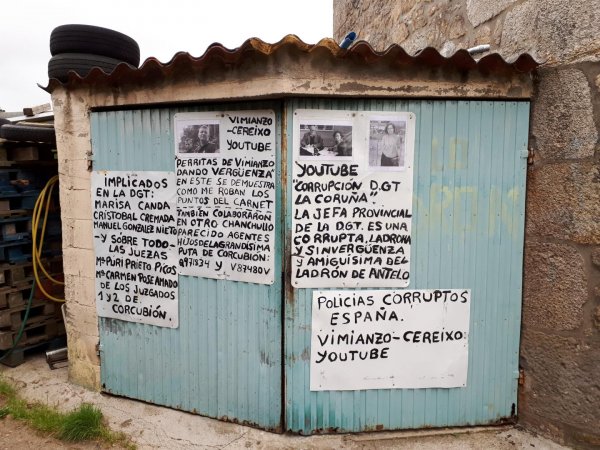 IMPLICADOS
EN LA DGT:
MARISA CANDA
CRISTOBAL CREMADA
MANUEL GONZALEZ NIETO
- Y SÓBRE TODO-
LAS JUEZAS
Mª PURI PRIETO PICOS
Mª CARMEN POSE AMADO
DE LOS JUZGADOS
1 Y 2 DE
CORCUBIÓN.
VIMIANZO
-CEREIXO
YOUTUBE
"PERRITAS DE VIMIANZO
DANDO VERGÜENZA"
EN ESTE SE DEMUESTRA
COMO ME ROBAN LOS
PUNTOS DEL CARNET
TAMBIÉN COLABORARON
EN OTRO CHANCHULLO
PARECIDO AGENTES
HIJOS DE LA GRANDÍSIMA
PUTA DE CORCUBIÓN:
Y V87480V
YOUTUBE
"CORRUPCIÓN D.GT
LA CORUÑA"
LA JEFA PROVINCIAL
DE LA DGT. ES UNA
CORRUPTA, LADRONA
Y SINVERGÜENZA
Y AMIGUÍSIMA DEL
LADRÓN DE ANTELO
POLICIAS CORRUPTOS
ESPAÑA.
VIMIANZO-CEREIXO
YOUTUBE